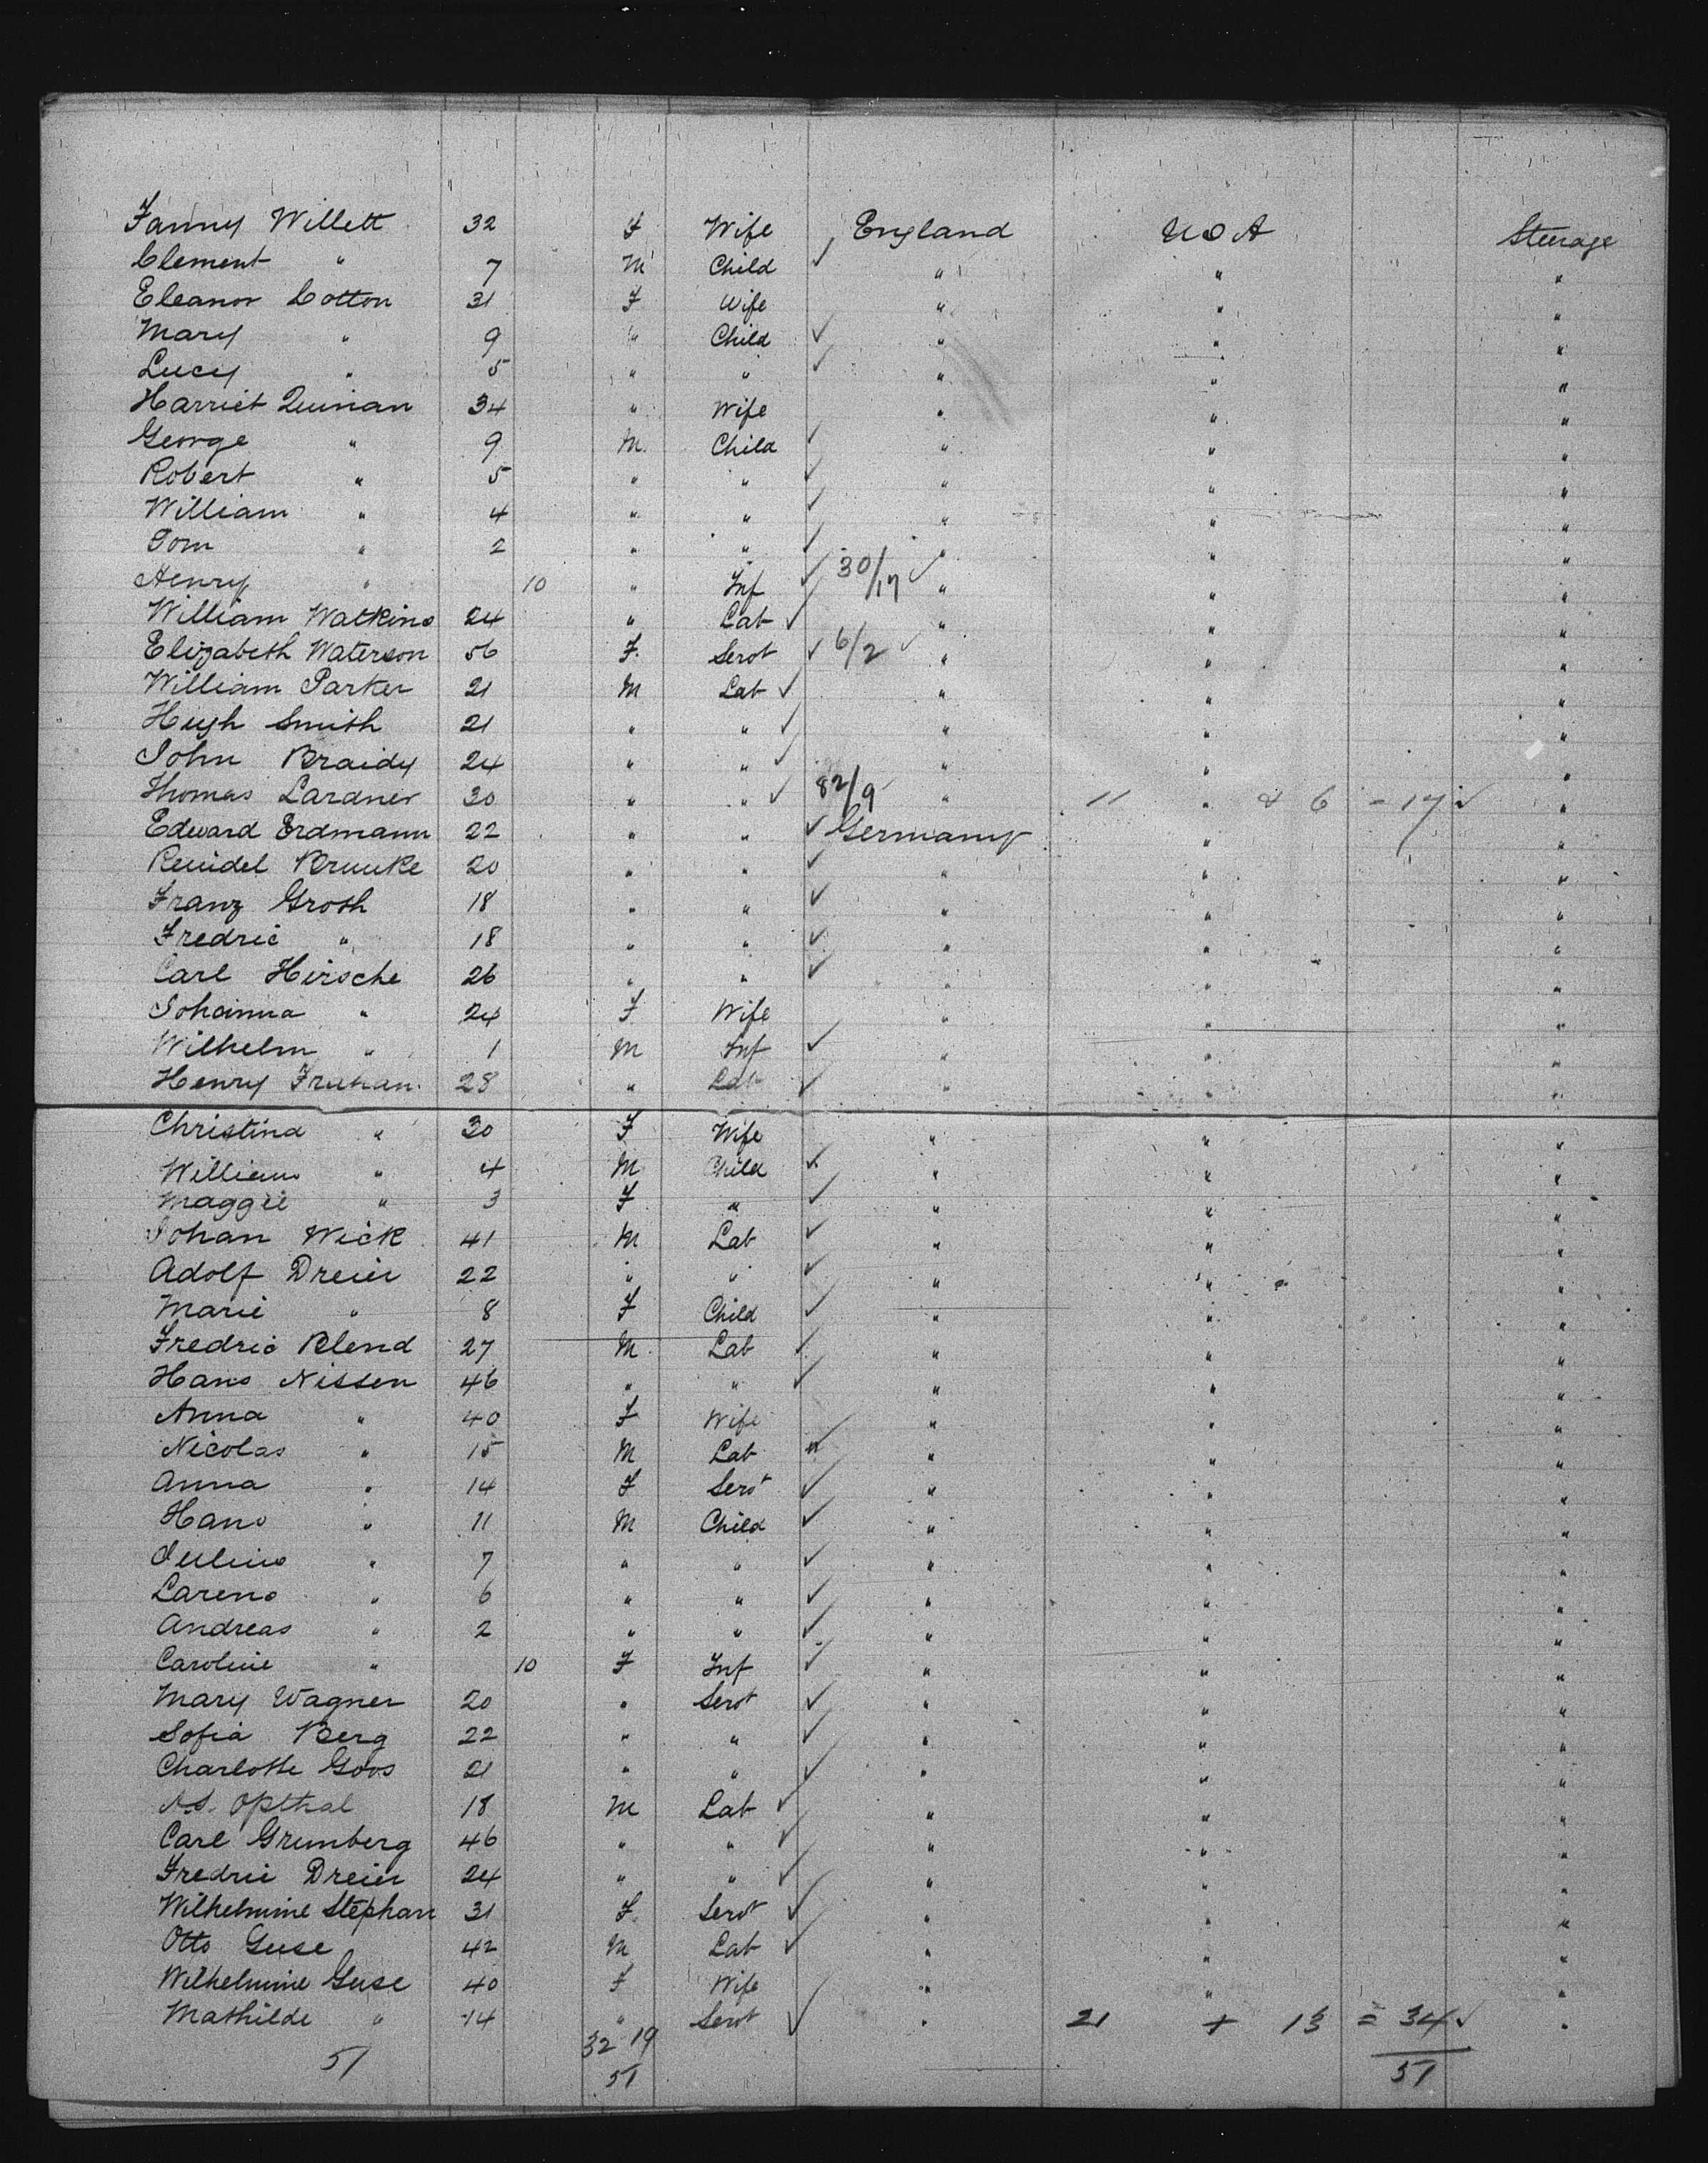 Fanny Willett 32 F Wife England USA Steerage
Clement " 7 M Child " " "
Eleanor Cotton 31 F Wife " " "
Mary " 9 " Child " " "
Lucy " 5 " " " " "
Harriet Quinan 34 " Wife " " "
George " 9 M Child " " "
Robert " 5 " " " " "
William " 4 " " " " "
Tom " 2 " " " " "
Henry " 10 " Inf 30/17 " " "
William Watkins 24 " Lab " " "
Elizabeth Waterson 56 F. Servt 6/2 " " "
William Parker 21 M Lab " " "
Hugh Smith 21 " " " " "
John Braidy 24 " " " " "
Thomas Lardner 30 " " 82/9 " 11 " & 6 = 17 "
Edward Erdmann 22 " " Germany " "
20 " " " " "
Franz Groth 18 " " " " "
Fredric " 18 " " " " "
Carl Hirsche 26 " " " " "
Johanna " 24 F Wife " " "
Wilhelm " 1 M Inf " " "
Henry 28 " Lab " " "
Christina " 30 F Wife " " "
William " 4 M Child " " "
Maggie " 3 F " " " "
Johan Wick 41 M Lab " " "
Adolf Dreier 22 " " " " "
Marie " 8 F Child " " "
Fredric Blend 27 M Lab " " "
Hans Nissen 46 " " " " "
Anna " 40 F Wife " " "
Nicolas " 15 M Lab " " "
Anna " 14 F Servt " " "
Hans " 11 M Child " " "
Julius " 7 " " " " "
Larens " 6 " " " " "
Andreas " 2 " " " " "
Caroline " 10 F Inf " " "
Mary Wagner 20 " Servt " " "
Sofia Berg 22 " " " " "
Charlotte Goos 21 " " " " "
Opthal 18 M Lab " " "
Carl Grunberg 46 " " " " "
Fredric Dreier 24 " " " " "
Wilhelmine Stephan 31 F Servt " " "
Otto Guse 42 M Lab " " "
Wilhelmine Guse 40 F Wife " " "
Mathilde " 14 " Servt " 21 + 13 = 34 "
51 32 19 51
51